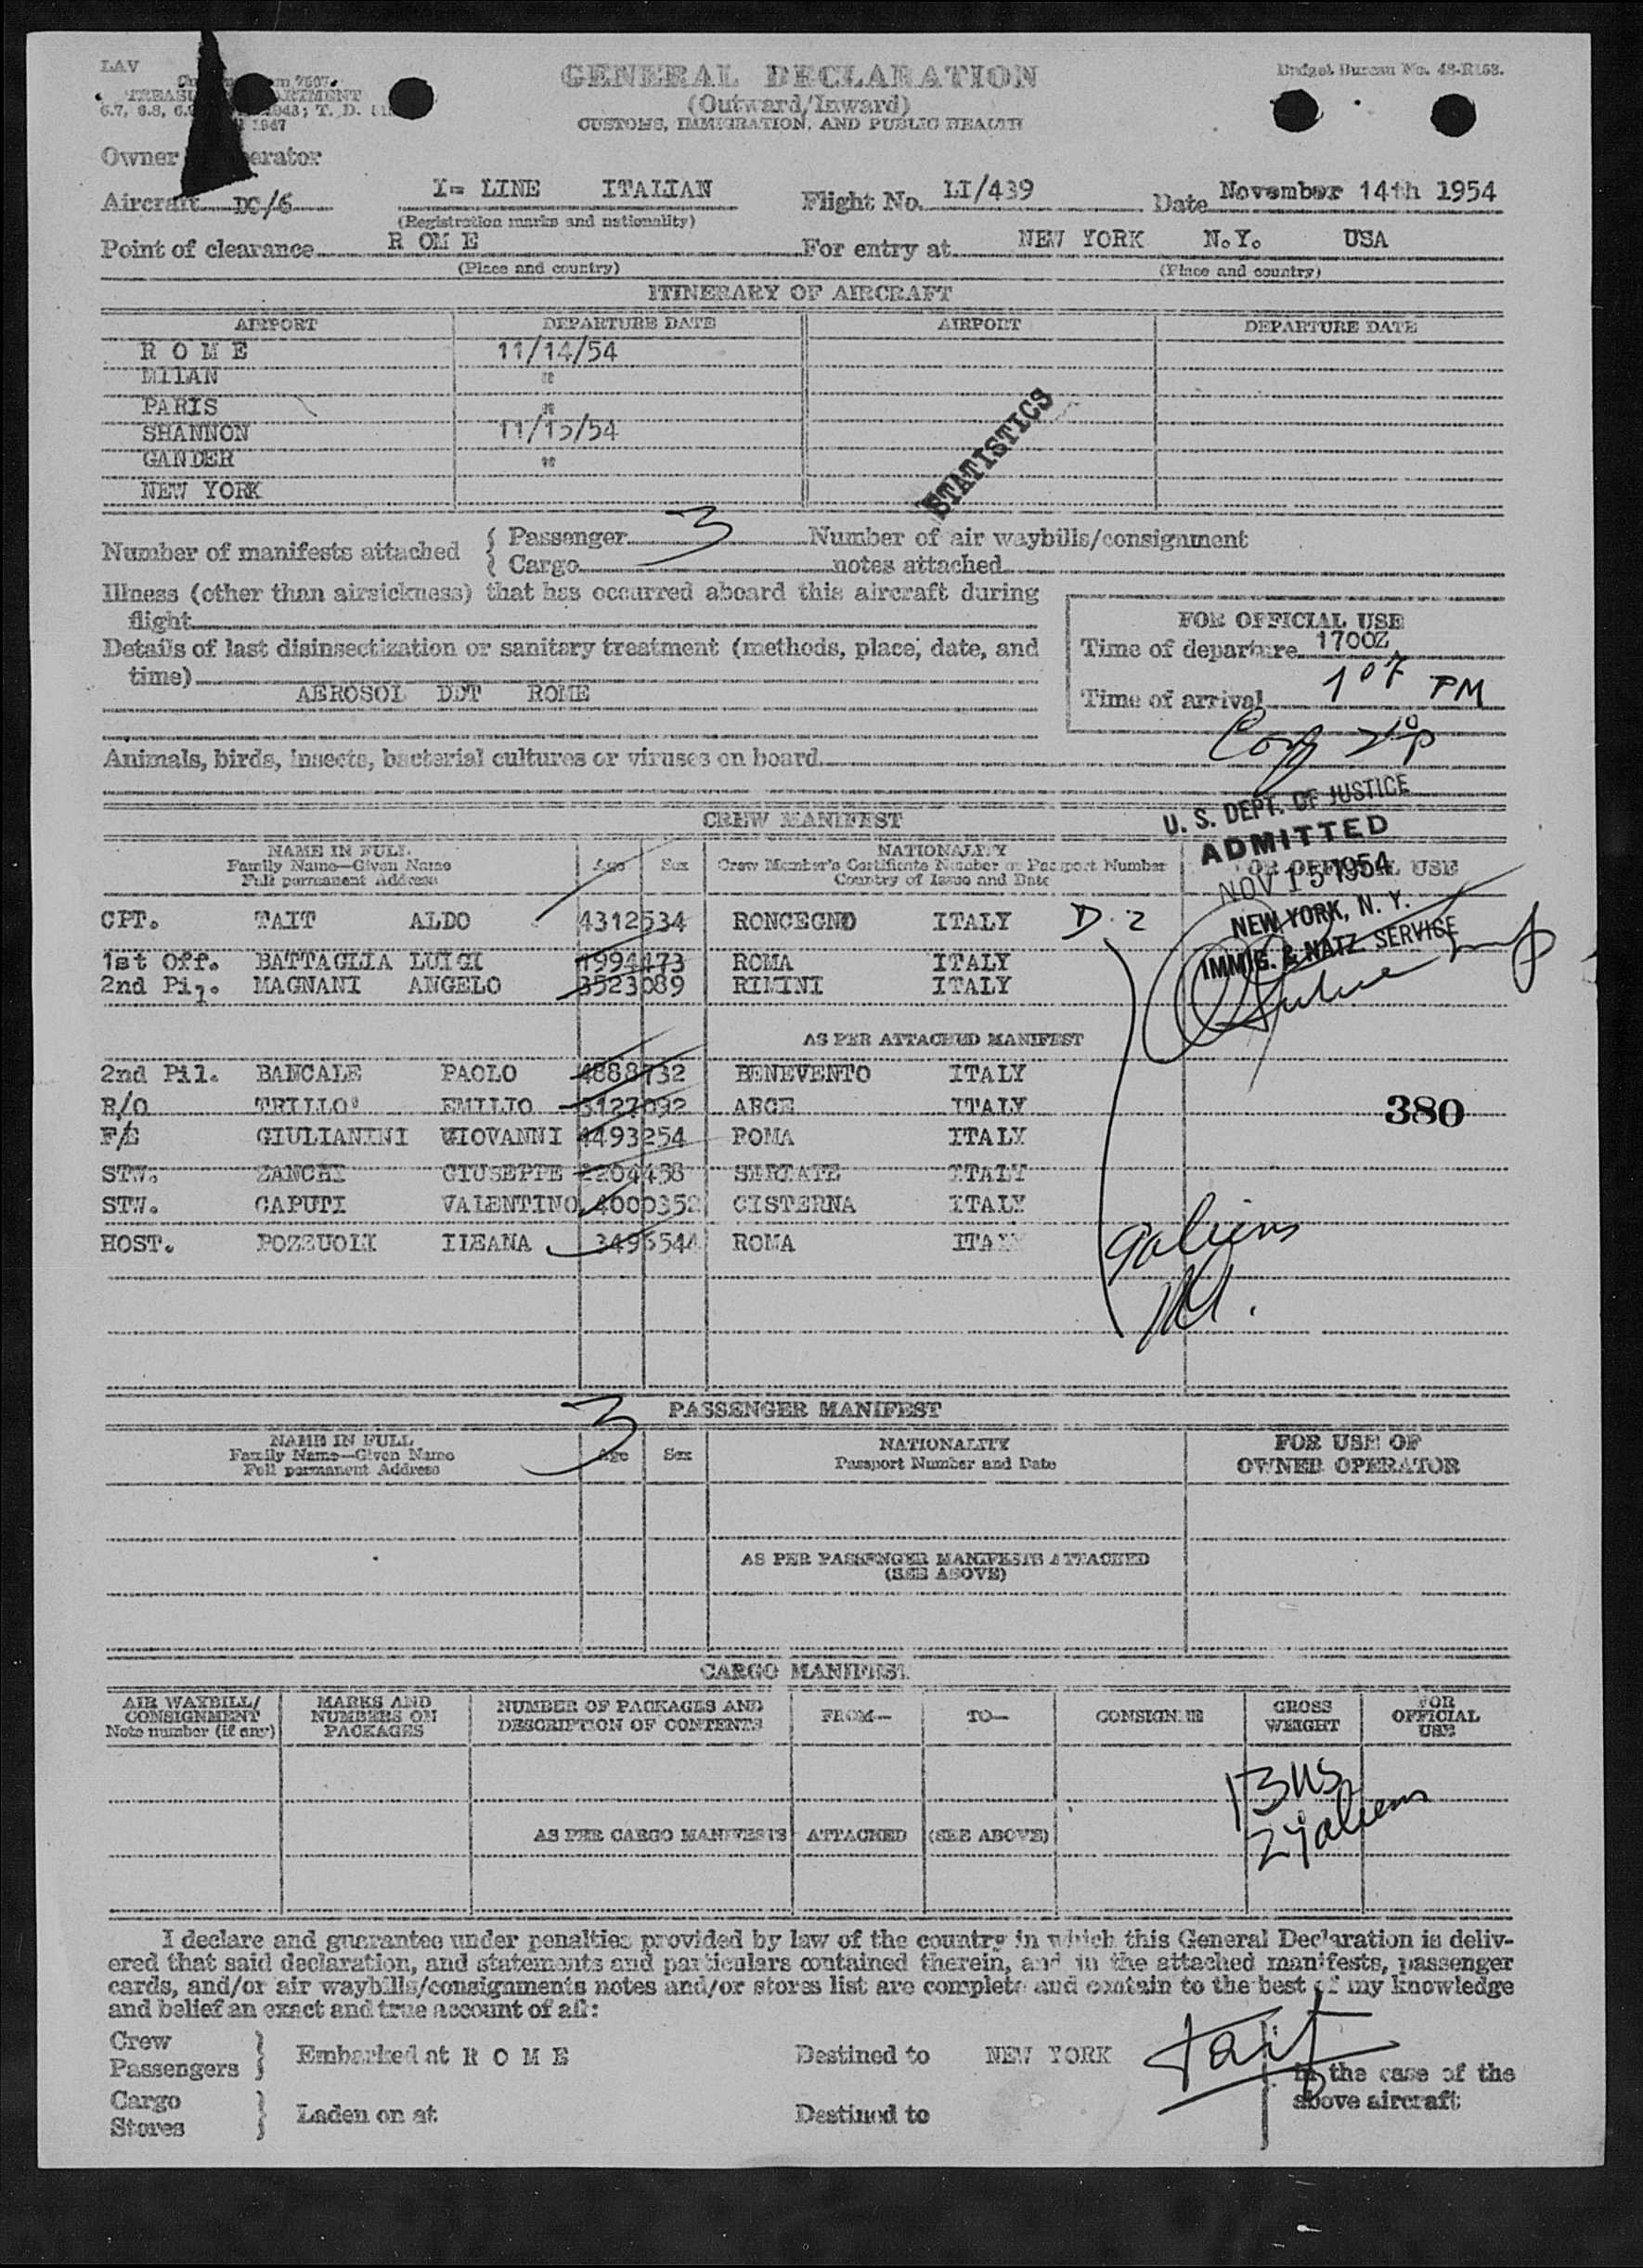 LAV
GENERAL DECLARATION
(Outward/Inward)
CUSTOMS, IMMIGRATION, AND PUBLIC HEALTH
Budget Bureau No. 48-R168.
TREASU
1947
Owner erator
Aircraft DC/6 I= LINE ITALIAN Flight No. LI/439 Date November 14th 1954
(Registration marks and nationality)
Point of clearance R OM E For entry at NEW YORK N.Y. USA
(Place and country) (Place and country)
ITINERARY OF AIRCRAFT
AIRPORT DEPARTURE DATE AIRPORT DEPARTURE DATE
R O M E 11/14/54
MILAN "
PARIS "
SHANNON 11/15/54
GANDER "
NEW YORK
STATISTICS
Number of manifests attached { Passenger 3 Number of air waybills/consignment
{ Cargo notes attached
Illness (other than airsickness) that has occurred aboard this aircraft during
flight
Details of last disinsectization or sanitary treatment (methods, place, date, and
time)
AEROSOL DDT ROME
FOR OFFICIAL USE
Time of departure 1700Z
Time of arrival 1 07 PM
Animals, birds, insects, bacterial cultures or viruses on board
U. S. DEPT. OF JUSTICE
ADMITTED
NOV 15 1954
NEW YORK, N. Y.
IMMIG. & NATZ. SERVICE
CREW MANIFEST
NAME IN FULL
Family Name—Given Name
Full permanent Address
Age Sex
NATIONALITY
Crew Member's Certificate Number or Passport Number
Country of Issue and Date
FOR OFFICIAL USE
CPT. TAIT ALDO 4312534 RONCEGNO ITALY D. 2
1st Off. BATTAGLIA LUIGI 1994473 ROMA ITALY
2nd Pil. MAGNANI ANGELO 3523089 RIMINI ITALY
AS PER ATTACHED MANIFEST
2nd Pil. BANCALE PAOLO 4888732 BENEVENTO ITALY
R/O TRILLO' EMILIO 3127092 ARCE ITALY
380
F/E GIULIANINI GIOVANNI 4493254 ROMA ITALY
STW. ZANCHI GIUSEPPE 2204438 SERIATE ITALY
STW. CAPUTI VALENTINO 4000352 CISTERNA ITALY
HOST. POZZUOLI ILEANA 3496544 ROMA ITALY
9 aliens
PASSENGER MANIFEST
3
NAME IN FULL
Family Name—Given Name
Full permanent Address
Age Sex
NATIONALITY
Passport Number and Date
FOR USE OF
OWNER OPERATOR
AS PER PASSENGER MANIFESTS ATTACHED
(SEE ABOVE)
CARGO MANIFEST
AIR WAYBILL/
CONSIGNMENT
Note number (if any)
MARKS AND
NUMBERS ON
PACKAGES
NUMBER OF PACKAGES AND
DESCRIPTION OF CONTENTS
FROM—
TO—
CONSIGNEE
GROSS
WEIGHT
FOR
OFFICIAL
USE
13 US
24 aliens
AS PER CARGO MANIFESTS ATTACHED (SEE ABOVE)
I declare and guarantee under penalties provided by law of the country in which this General Declaration is deliv-
ered that said declaration, and statements and particulars contained therein, and in the attached manifests, passenger
cards, and/or air waybills/consignments notes and/or stores list are complete and contain to the best of my knowledge
and belief an exact and true account of all:
Crew
Passengers } Embarked at R O M E Destined to NEW YORK
Tait
in the case of the
above aircraft
Cargo
Stores } Laden on at Destined to